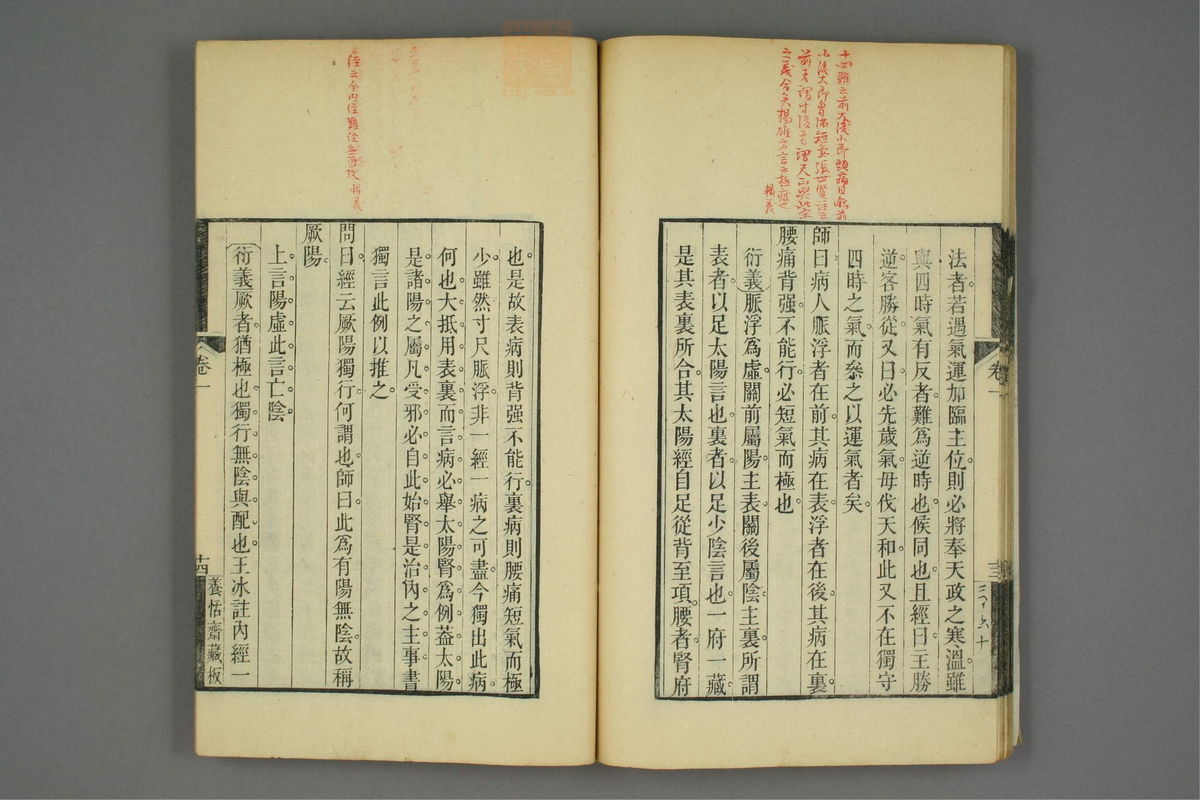 十四難云前大後小即頭痛目眩前
小後大即胷滿短氣張世賢註云
前者謂寸後者謂尺
之義合矣楊雄方言云極疲也
輯義
法者若遇氣運加臨主位則必將奉天政之寒溫雖
與四時氣有反者難爲逆時也候同也且經曰主勝
逆客勝從又曰必先歲氣毋伐天和此又不在獨守
四時之氣而叅之以運氣者矣
師曰病人脈浮者在前其病在表浮者在後其病在裏
腰痛背强不能行必短氣而極也
衍義脈浮爲虛關前屬陽主表關後屬陰主裏所謂
表者以足太陽言也裏者以足少陰言也一府一藏
是其表裏所合其太陽經自足從背至項腰者腎府
卷一
十三
經云今内經難經無所攷
輯義
也是故表病則背强不能行裏病則腰痛短氣而極
少雖然寸尺脈浮非一經一病之可盡今獨出此病
何也大抵用表裏而言病必舉太陽腎爲例葢太陽
是諸陽之屬凡受邪必自此始腎是治内之主事書
獨言此例以推之
問曰經云厥陽獨行何謂也師曰此爲有陽無陰故稱
厥陽
上言陽虛此言亡陰
衍義厥者猶極也獨行無陰與配也王冰註内經一
卷一
十四
養恬齋藏板